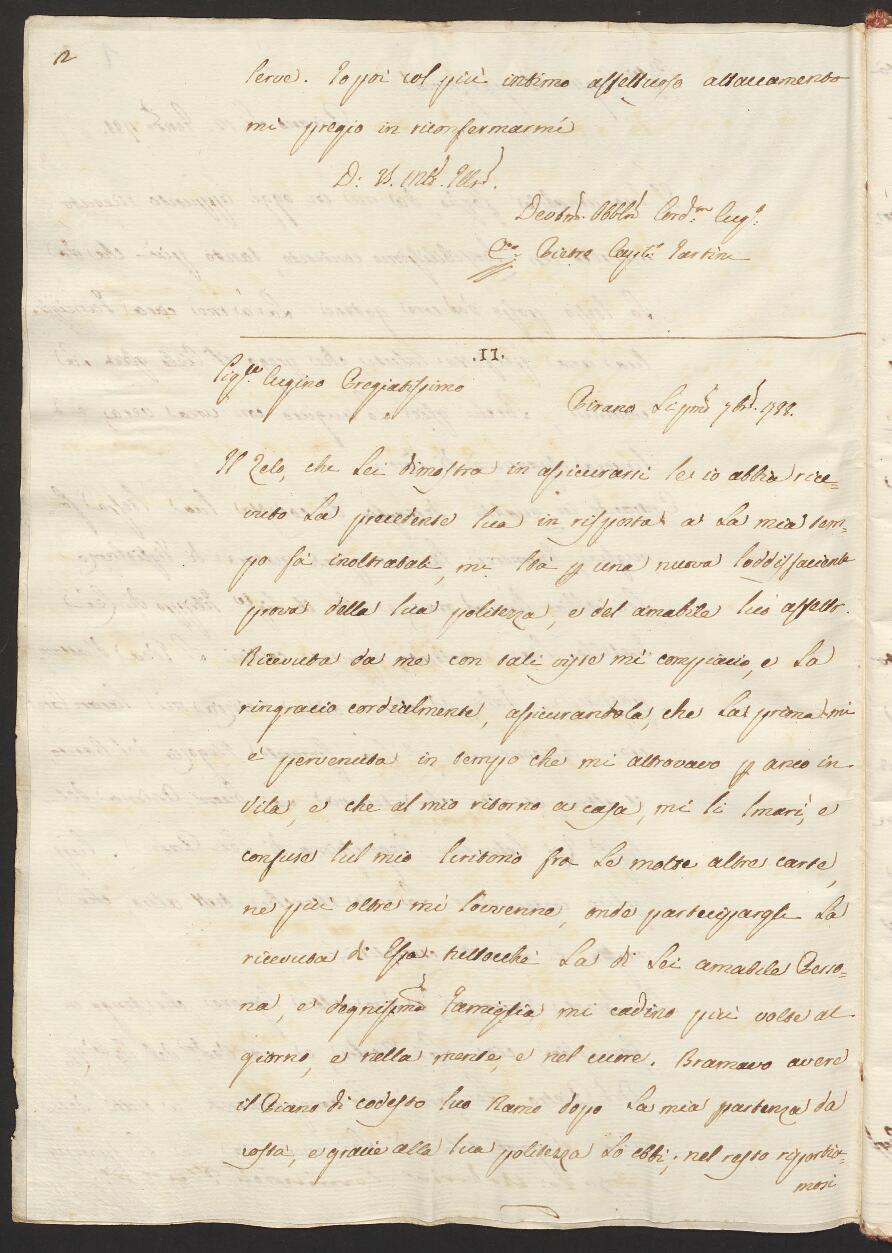 2
serve. Io poi col più intimo affettuoso attaccamento
mi pregio in riconfermarmi
D: V. Ill.
Devotm. Obblm Cord.m Cug.o
Pietro Tartini
.II.
Sig.re Cugino Pregiatissimo
Pirano Li pmo 7bre 1788.
Il Zelo, che Lei dimostra in assicurarsi se io abbia rice-
vuto La precedente sua in risposta a La mia tem-
po fà inoltratali, mi stà p una nuova soddisfaciente
prova della sua politezza, e del amabile suo affetto.
Ricevuta da me con tali viste mi compiacio, e La
ringracio cordialmente, assicurandola, che La prima mi
è pervenuta in tempo che mi attrovavo p anco in
Vila, e che al mio ritorno a casa, mi si smarì, e
confuse sul mio scritorio fra Le molte altre carte,
ne più oltre mi sovvenne, onde partecipargli La
ricevuta di Essa tuttocchè La di Lei amabile Perso-
na, e degnissima Famiglia mi cadino più volte al
giorno, e nella mente, e nel cuore. Bramavo avere
il Piano di codesto suo Ramo dopo La mia partenza da
costà, e gracie alla sua politezza Lo ebbi; nel resto riportia-
mosi